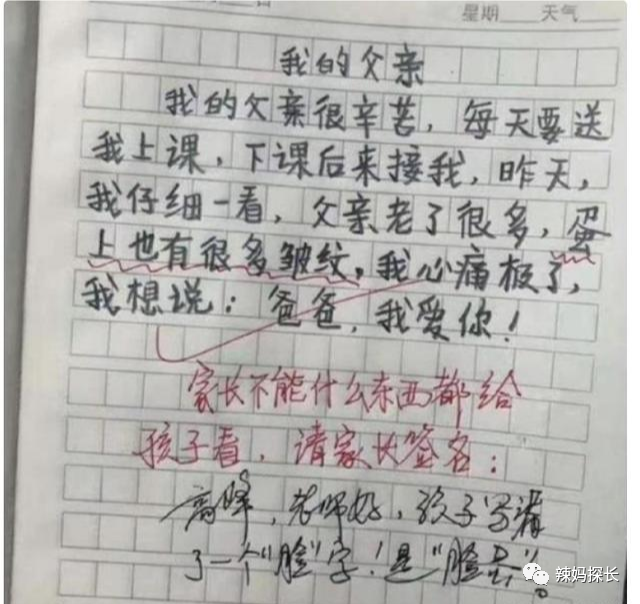 日 星期 天气
我的父亲
我的父亲很辛苦，每天要送
我上课，下课后来接我，昨天，
我仔细一看，父亲老了很多，蛋
上也有很多皱纹，我心痛极了，
我想说：爸爸，我爱你！
家长不能什么东西都给
孩子看，请家长签名：
高峰，老师好，孩子写漏
了一个“脸”字！是“脸蛋”。
辣妈探长